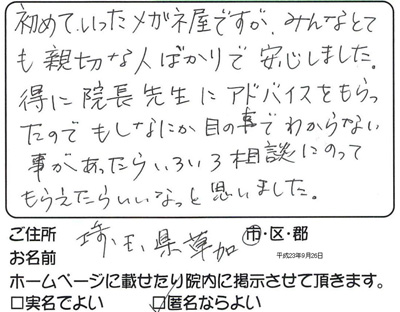 初めていったメガネ屋ですが、みんなとて
も親切な人ばかりで安心しました。
得に院長先生にアドバイスをもらっ
たのでもしなにか目の事でわからない
事があったらいろいろ相談にのって
もらえたらいいなっと思いました。
ご住所 埼玉県草加 市・区・郡
お名前 平成23年9月26日
ホームページに載せたり院内に掲示させて頂きます。
□実名でよい ☑匿名ならよい